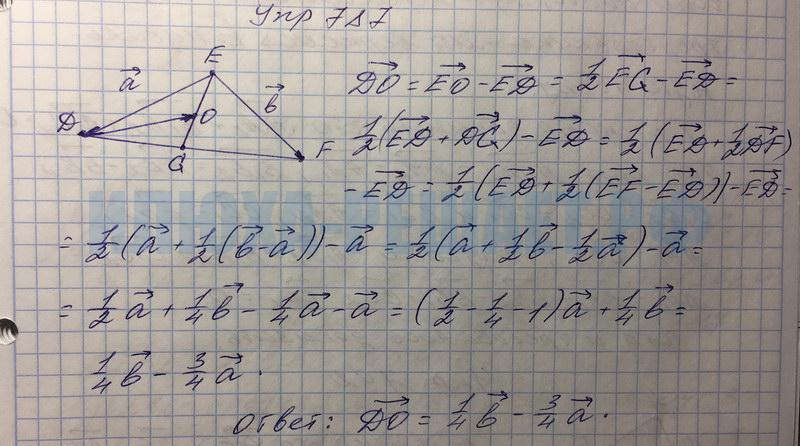 Упр 787
E
a⃗
b⃗
D
O
Q
F
D⃗O = E⃗O - E⃗D = 1/2 E⃗Q - E⃗D =
1/2(E⃗D + D⃗Q) - E⃗D = 1/2(E⃗D + 1/2 D⃗F)
- E⃗D = 1/2(E⃗D + 1/2(E⃗F - E⃗D)) - E⃗D =
= 1/2(a⃗ + 1/2(b⃗ - a⃗)) - a⃗ = 1/2(a⃗ + 1/2 b⃗ - 1/2 a⃗) - a⃗ =
= 1/2 a⃗ + 1/4 b⃗ - 1/4 a⃗ - a⃗ = (1/2 - 1/4 - 1)a⃗ + 1/4 b⃗ =
1/4 b⃗ - 3/4 a⃗.
ответ: D⃗O = 1/4 b⃗ - 3/4 a⃗.